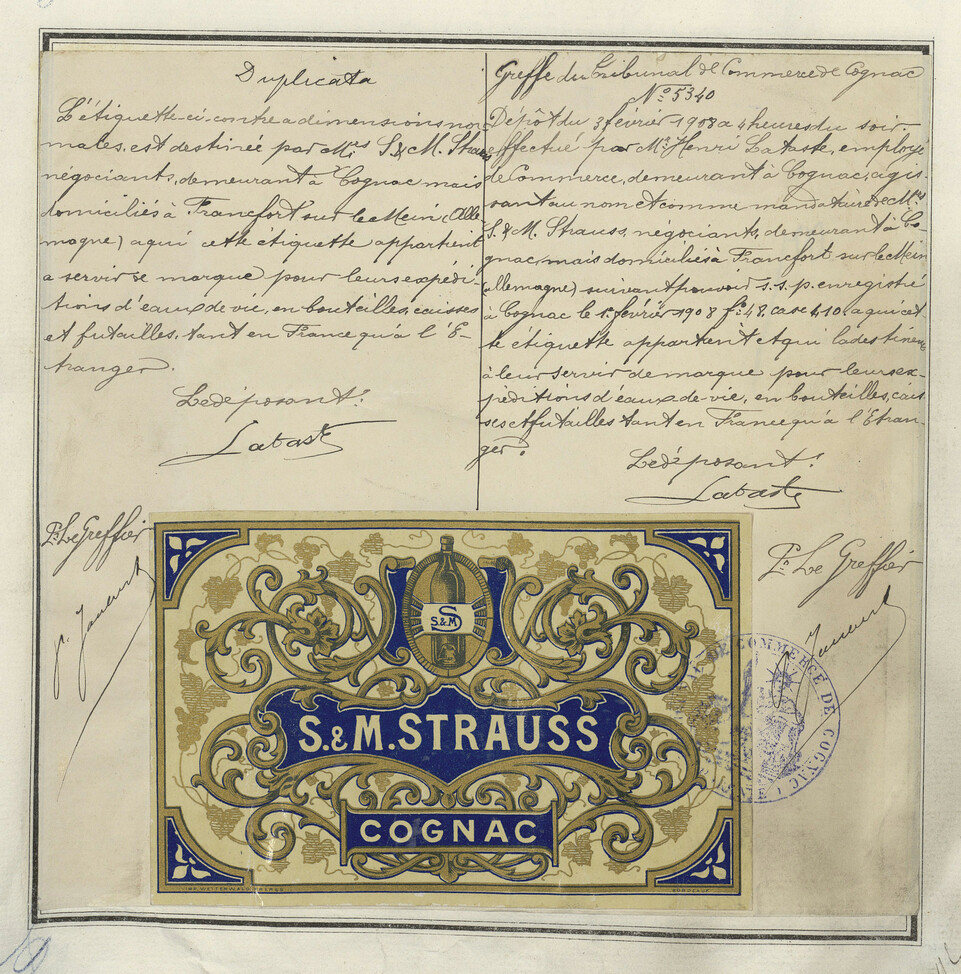 Duplicata
L'étiquette ci-contre a dimensions nor-
males, est destinée par Mrs S. & M. Strauss
négociants, demeurant à Cognac mais
domiciliés à Francfort sur le Mein (Alle-
magne) a qui cette étiquette appartient
a servir de marque pour leurs expédi-
tions d'eaux de vie, en bouteilles, caisses
et futailles, tant en France qu'à l'É-
tranger.
Le déposant:
Lataste
Pr Le Greffier
Greffe du Tribunal de Commerce de Cognac
No 5340
Dépôt du 3 février 1908 a 4 heures du soir
effectué par Mr Henri Lataste, employé
de Commerce, demeurant à Cognac, agis-
sant au nom et comme mandataire de Mrs
S. & M. Strauss, négociants, demeurant à Co-
gnac, mais domiciliés à Francfort sur le Mein
(allemagne) suivant pouvoir s.s.p. enregistré
à Cognac le 1er février 1908 fo 48 case 410, a qui cet-
te étiquette appartient et qui la destinent
à leur servir de marque pour leurs ex-
péditions d'eaux-de-vie, en bouteilles, cais-
ses et futailles tant en France qu'à l'Etran-
ger.
Le déposant:
Lataste
Pr Le Greffier
S
S.&M
S.&M.STRAUSS
COGNAC
BORDEAUX
DE COMMERCE DE COGNAC